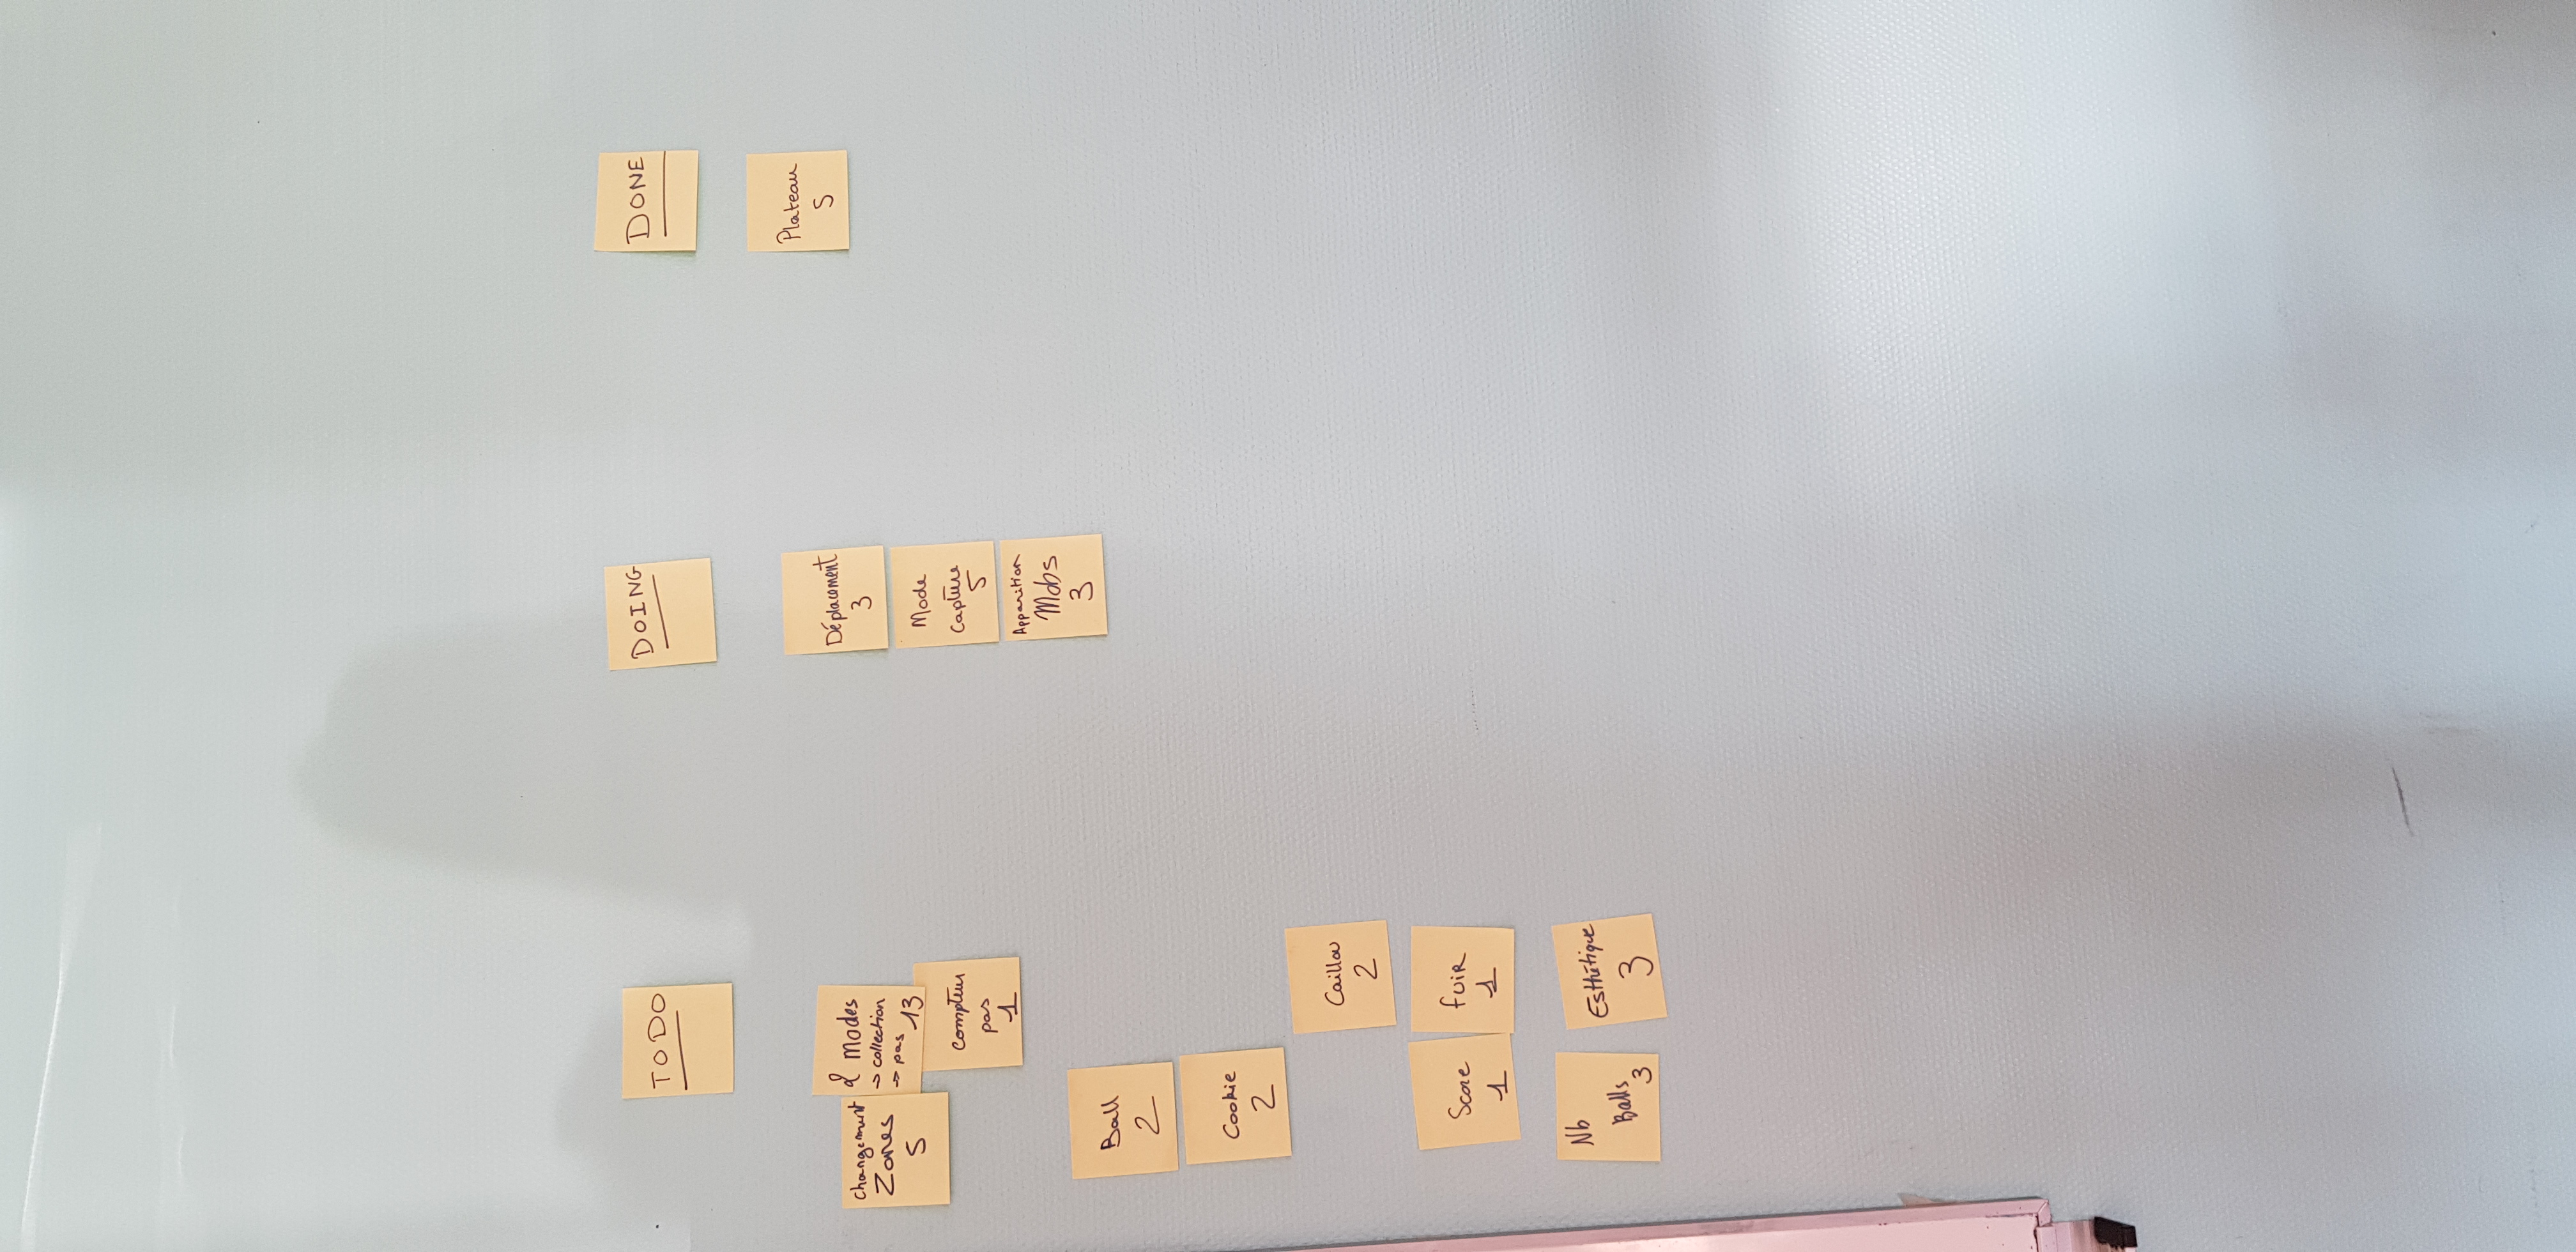 TO DO
DOING
DONE
Changement
Zones
5
2 modes
→ collection
→ pas 13
compteur
pas
1
Ball
2
Cookie
2
Caillou
2
Score
1
fuir
1
Nb
Balls
3
Esthétique
3
Déplacement
3
Mode
Capture
5
Apparition
Mobs
3
Plateau
5